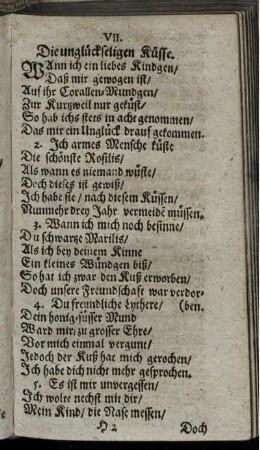 VII.
Die unglückseligen Küsse.
WAnn ich ein liebes Kindgen/
Daß mir gewogen ist/
Auf ihr Corallen-Mündgen/
Zur Kurtzweil nur geküst/
So hab ichs stets in acht genommen/
Das mir ein Unglück drauf gekommen.
2. Ich armes Mensche küste
Die schönste Rosilis/
Als wann es niemand wüste/
Doch dieses ist gewiß/
Ich habe sie/ nach diesem Küssen/
Nunmehr drey Jahr vermeidē müssen.
3. Wann ich mich noch besinne/
Du schwartze Marilis/
Als ich bey deinem Kinne
Ein kleines Wündgen biß/
So hat ich zwar den Kuß erworben/
Doch unsere Freundschaft war verdor-
4. Du freundliche Lythere/ (ben.
Dein honig-süsser Mund
Ward mir/ zu grosser Ehre/
Vor mich einmal vergunt/
Jedoch der Kuß hat mich gerochen/
Ich habe dich nicht mehr gesprochen.
5. Es ist mir unvergessen/
Ich wolte nechst mit dir/
Mein Kind/ die Nase messen/
H 2 Doch